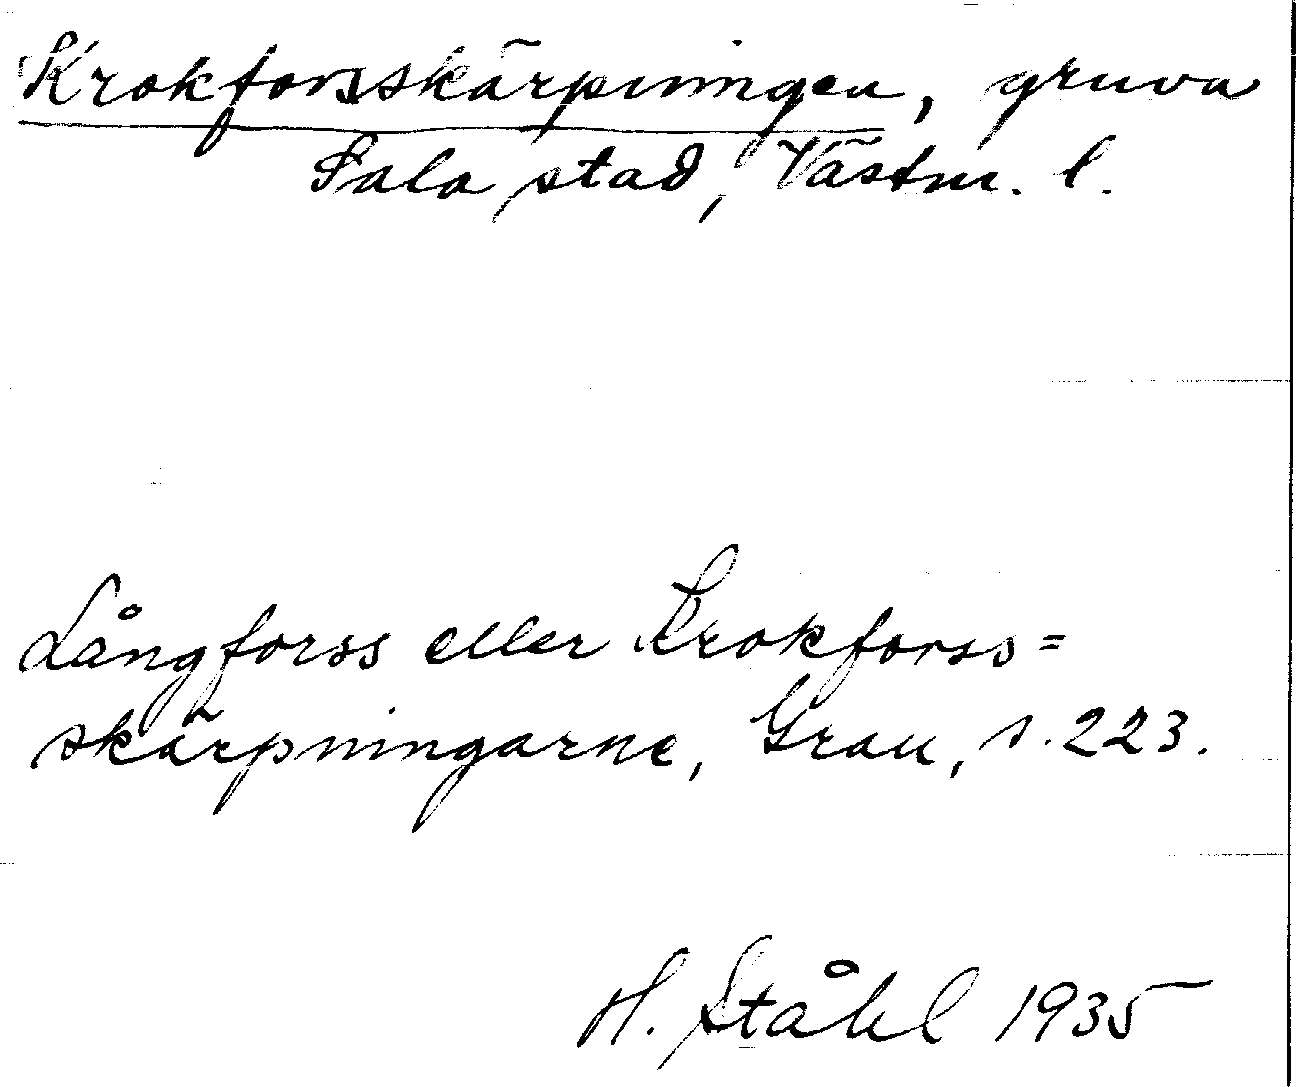 Krokforsskärpningen, gruva
Sala stad, Västm. l.
Långforss eller Krokforss=
skärpningarne, Grau, s. 223.
H. Ståhl 1935